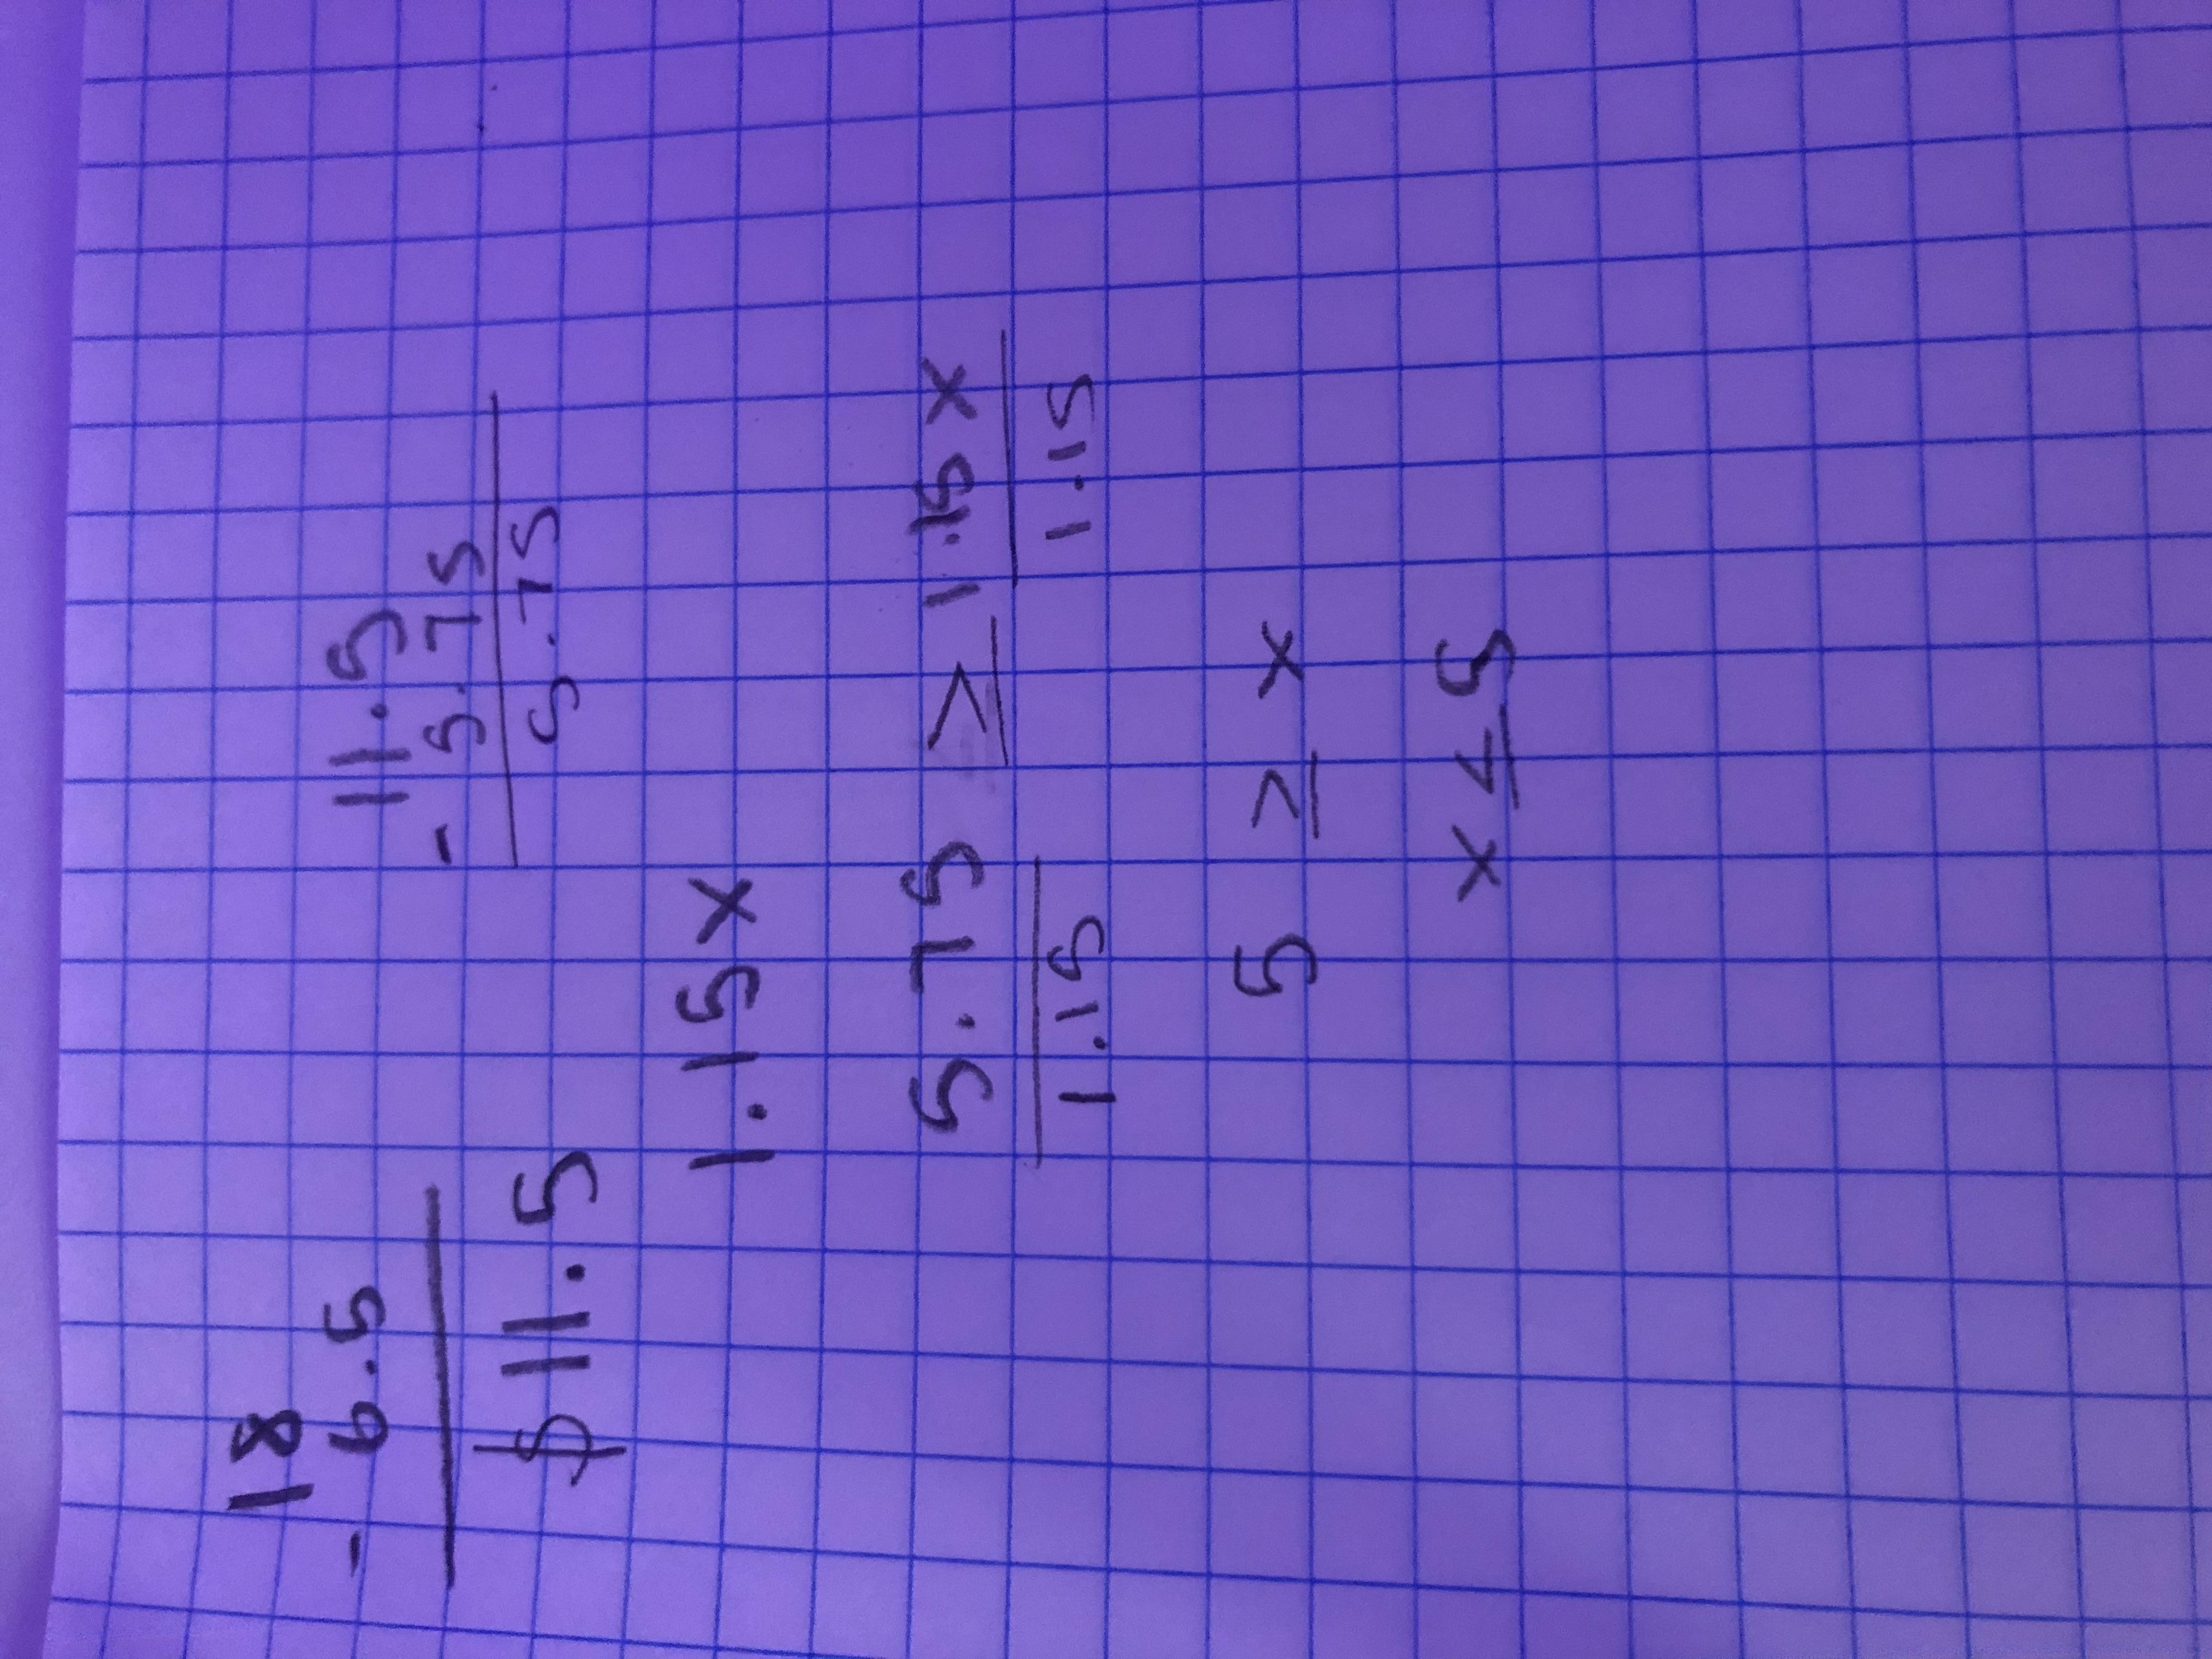 18
- 6.5
$11.5
11.5
- 5.75
5.75
1.15x
5.75 ≥ 1.15x
1.15 1.15
5 ≥ x
x ≤ 5